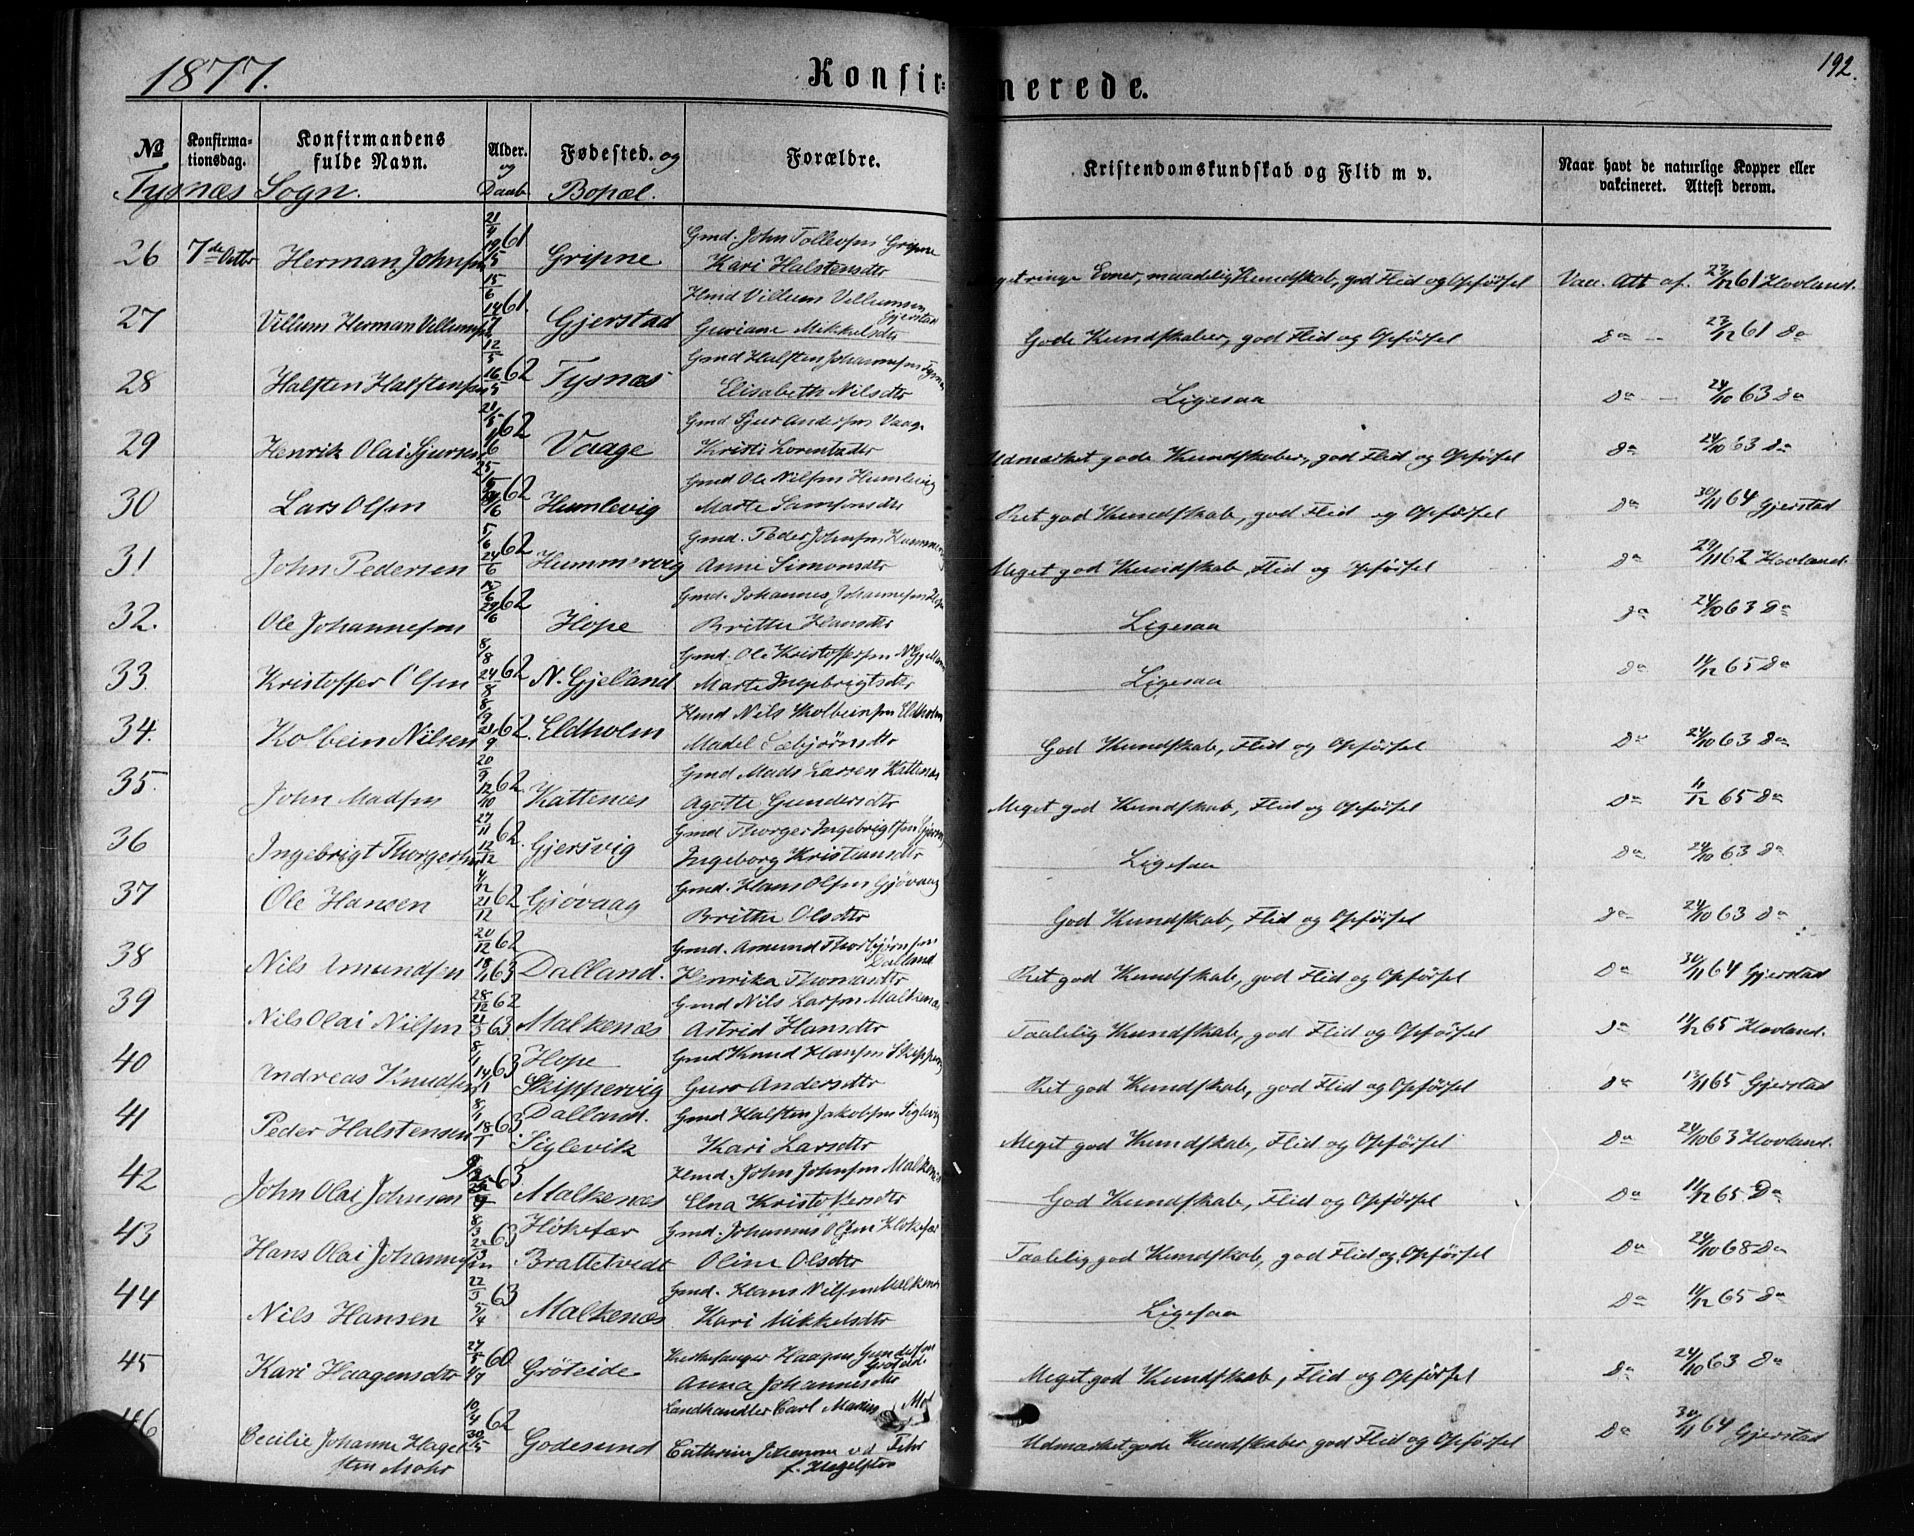 1877.
Konfir-
merede.
192.
№
Konfirma-
tionsdag.
Konfirmandens
fulde Navn.
Alder.
og
Daab
Fødested. og
Bopæl.
Forældre.
Kristendomskundskab og Flid m v.
Naar havt de naturlige Kopper eller
vakcineret. Attest derom.
Tysnæs Sogn.
26 7de Octbr Herman Johnsen 21/4 61 19/5 Gripne Gmd. John Tollevsen Gripne
Kari Halstensdtr
ringe Evner, maadelig Kundskab, god Flid og Opførsel Vacc. Att af. 23/12 61 Hovland.
27 Villum Herman Villumsen 15/6 61. 14/7 Gjerstad Hmd Villum Villumsen Gjerstad
Guriane Mikkelsdtr
Gode Kundskaber, god Flid og Opførsel Do 23/12 61 Do
28 Halsten Halstensen 12/5 62 16/5 Tysnæs Gmd Halsten Johannesen
Elisabeth Nilsdtr
Ligesaa Do 24/10 63 Do
29 Henrik Olai Sjursen 62 Vaage Gmd Sjur Andersen Vaage
Kristi Lorentzdtr
Udmærket gode Kundskaber, god Flid og Opførsel Do 24/10 63 Do
30 Lars Olsen 62 Humlevig Gmd Ole Nilsen Humlevig
Marte Samsonsdtr
Ret god Kundskab, god Flid og Opførsel Do 30/11 64 Gjerstad
31 John Pedersen 5/6 62 24/6 Hummervig Gmd. Peder Johnsen
Anne Simonsdtr
Meget god Kundskab, Flid og Opførsel Do 29/11 62 Hovland.
32. Ole Johannesen 62 29/6 Hope Gmd. Johannes Johannesen
Britta Hansdtr
Ligesaa Do 24/10 63 Do
33. Kristoffer Olsen 8/8 62 24/8 N. Gjeland Gmd. Ole Kristoffersen
Marte Ingebrigtsdtr
Ligesaa Do 11/12 65 Do
34. Kolbein Nilsen 62. Eldholm Hmd Nils Kolbeinsen Eldholm
Madel Sæbjørnsdtr
God Kundskab, Flid og Opførsel Do 24/10 63 Do
35. John Madsen 20/9 62 12/10 Kattenæs Gmd Mads Larsen Kattenæs
Agotte Gundersdtr
Meget god Kundskab, Flid og Opførsel Do 11/12 65 Do
36 Ingebrigt Thorgersen 27/11 62. 12/12 Gjersvig Gmd Thorger Ingebrigtsen
Ingeborg Kristiansdtr
Ligesaa Do 24/10 63 Do
37 Ole Hansen 4/12 62 21/12 Gjøvaag Gmd. Hans Olsen Gjøvaag
Britta Olsdtr
God Kundskab, Flid og Opførsel Do 24/10 63 Do
38 Nils Amundsen 20/12 62 18/1 63 Dalland. Gmd. Amund Thorbjørnsen Dalland
Henrika Thomasdtr
Ret god Kundskab, god Flid og Opførsel Do 30/11 64 Gjerstad
39 Nils Olai Nilsen 28/12 62 21/3 63 Malkenæs Gmd Nils Larsen Malkenæs
Astrid Hansdtr
Taalelig Kundskab, god Flid og Opførsel Do 11/12 65 Hovland.
40 Andreas Knudsen 8/1 63 14/1 Hope
Skippervig Gmd Knud Hansen Skipperv
Guro Andersdtr
Ret god Kundskab, god Flid og Opførsel Do 13/11 65 Gjerstad
41 Peder Halstensen 8/1 63. 18/1 Dalland.
Siglevik Gmd Halsten Jakobsen Siglevig
Kari Larsdtr
Meget god Kundskab, Flid og Opførsel Do 24/10 63 Hovland.
42 John Olai Johnsen 63 Malkenæs Hmd. John Johnsen Malkenæs
Elna Kristoffersdtr
God Kundskab, Flid og Opførsel Do 11/12 65 Do
43 Hans Olai Johannesen 8/3 63 22/3 Høkefær
Brattetvedt Gmd. Johannes Olsen
Oline Olsdtr
Taalelig god Kundskab, god Flid og Opførsel Do 24/10 68 Do
44 Nils Hansen 22/3 63 5/4 Malkenæs Gmd. Hans Nilsen Malkenæs
Kari Mikkelsdtr
Ligesaa Do 11/12 65 Do
45 Kari Haagensdtr 27/5 60 Gröteide Kirkesanger Haagen Gundersen Gröteide
Anna Johannesdtr
Meget god Kundskab, Flid og Opførsel Do 24/10 63 Do
46 Cecilie Johanne Hagel-
sten Mohr 10/4 62 30/5 Godesund Landhandler Carl Marius
Cathrine Johanne v.d. Fehr
f. Hagelsten
Udmærket gode Kundskaber god Flid og Opførsel Do 30/11 64 Gjerstad